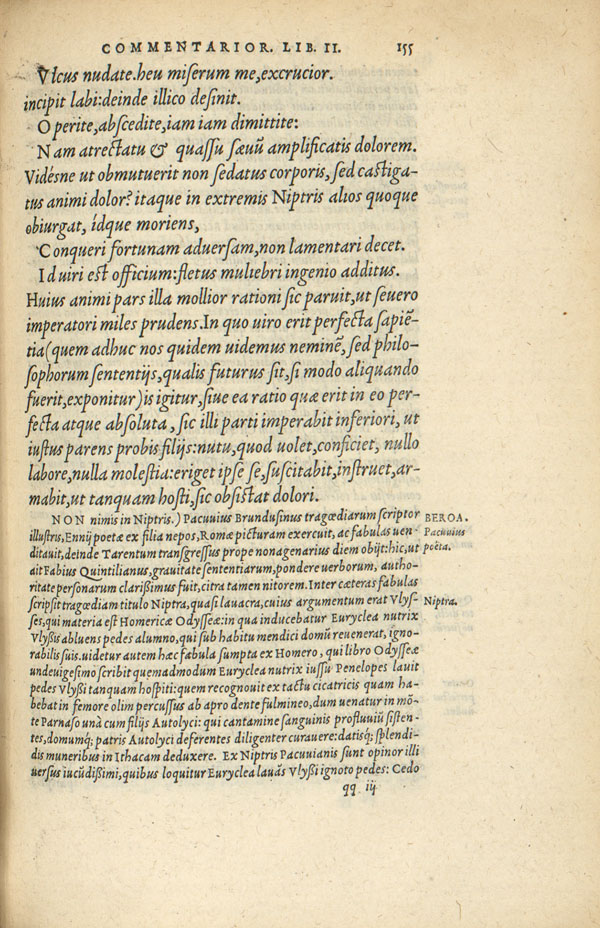 COMMENTARIOR. LIB. II. 155
Vlcus nudate.heu miserum me,excrucior.
incipit labi:deinde illico desinit.
Operite,abscedite,iam iam dimittite:
Nam atrectatu & quassu sæuũ amplificatis dolorem.
Vidésne ut obmutuerit non sedatus corporis, sed castiga-
tus animi dolor? itaque in extremis Niptris alios quoque
obiurgat, ídque moriens,
Conqueri fortunam aduersam,non lamentari decet.
Id uiri est officium:fletus muliebri ingenio additus.
Huius animi pars illa mollior rationi sic paruit,ut seuero
imperatori miles prudens.In quo uiro erit perfecta sapiẽ-
tia(quem adhuc nos quidem uidemus neminẽ, sed philo-
sophorum sententijs,qualis futurus sit,si modo aliquando
fuerit,exponitur)is igitur,siue ea ratio quæ erit in eo per-
fecta atque absoluta, sic illi parti imperabit inferiori, ut
iustus parens probis filijs:nutu,quod uolet,conficiet, nullo
labore,nulla molestia:eriget ipse se,suscitabit,instruet,ar-
mabit,ut tanquam hosti,sic obsistat dolori.
NON nimis in Niptris.) Pacuuius Brundusinus tragœdiarum scriptor
BEROA.
illustris,Ennij poetæ ex filia nepos,Romæ picturam exercuit, ac fabulas uen-
Pacuuius
ditauit,deinde Tarentum transgressus prope nonagenarius diem obijt:hic,ut
poëta.
ait Fabius Quintilianus,grauitate sententiarum,pondere uerborum, autho-
ritate personarum clarissimus fuit,citra tamen nitorem.Inter cæteras fabulas
scripsit tragœdiam titulo Niptra,quasi lauacra,cuius argumentum erat Vlys-
Niptra.
ses,qui materia est Homericæ Odysseæ:in qua inducebatur Euryclea nutrix
Vlyßis abluens pedes alumno,qui sub habitu mendici domũ reuenerat, igno-
rabilis suis.uidetur autem hæc fabula sumpta ex Homero, qui libro Odysseæ
undeuigesimo scribit quemadmodum Euryclea nutrix iussu Penelopes lauit
pedes Vlyßi tanquam hospiti:quem recognouit ex tactu cicatricis quam ha-
bebat in femore olim percussus ab apro dente fulmineo,dum uenatur in mõ-
te Parnaso unà cum filijs Autolyci: qui cantamine sanguinis profluuiũ sisten-
tes,domumq; patris Autolyci deferentes diligenter curauere:datisq; splendi-
dis muneribus in Ithacam deduxere. Ex Niptris Pacuuianis sunt opinor illi
uersus iucũdißimi,quibus loquitur Euryclea lauãs Vlyßi ignoto pedes: Cedo
qq iij